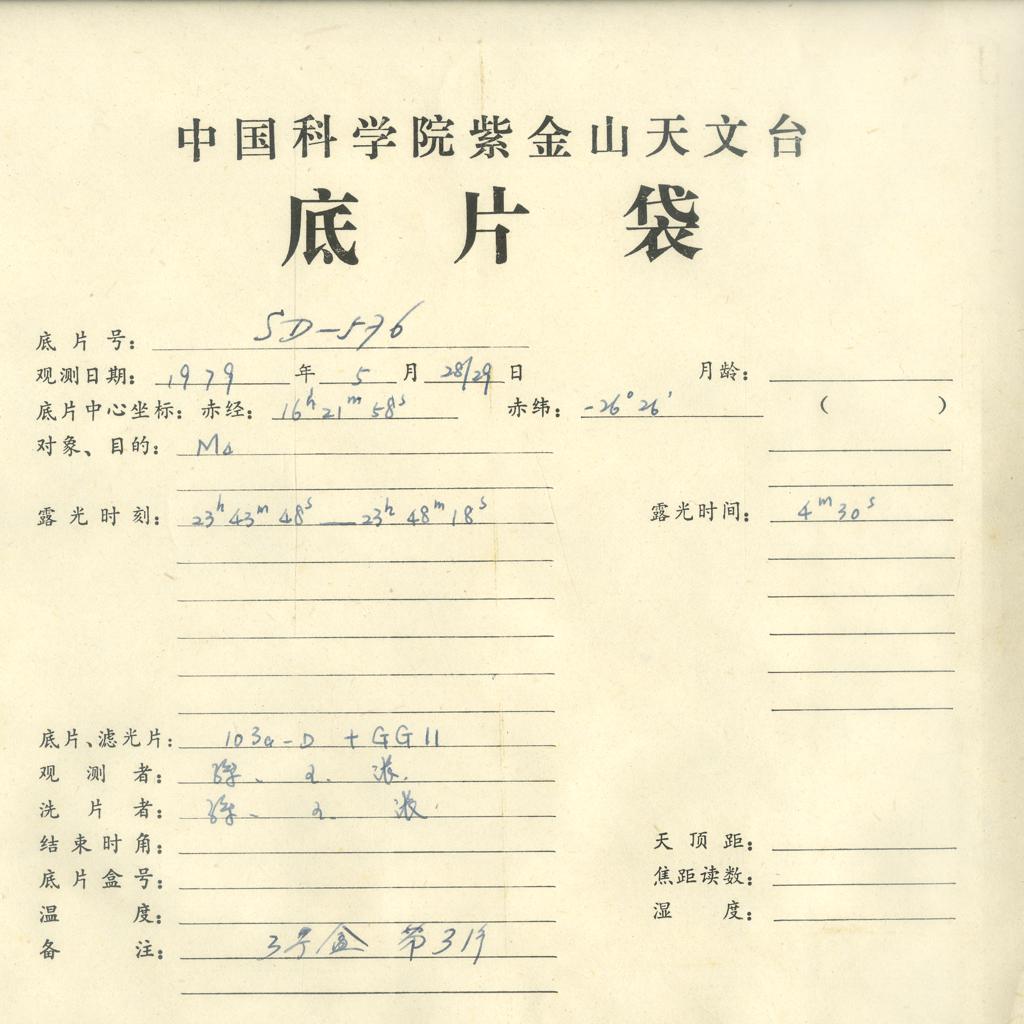 中国科学院紫金山天文台
底片袋
底片号: SD-576
观测日期: 1979 年 5 月 28/29 日 月龄:
底片中心坐标: 赤经: 16h 21m 58s 赤纬: -26° 26′ ( )
对象、目的:
露光时刻: 23h 43m 48s — 23h 48m 18s 露光时间: 4m 30s
底片、滤光片: 103a-D + GG11
观测者:
洗片者:
结束时角: 天顶距:
底片盒号: 焦距读数:
温度: 湿度:
备注: 3号盒 第3片